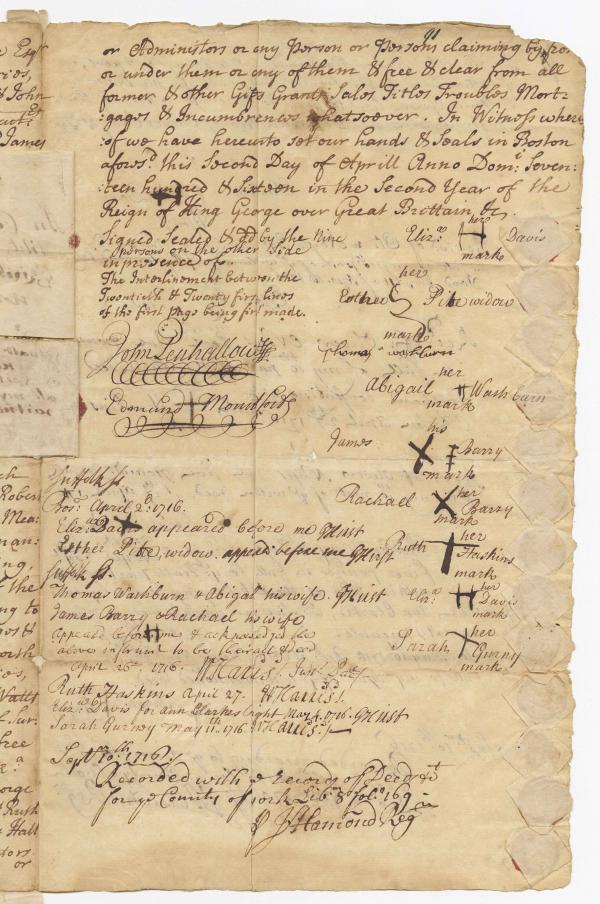 or Administors or any Person or Persons claiming by from
or under them or any of them & free & clear from all
former & other Gifts Grants Sales Titles Troubles Mort-
:gages & Incumbrences whatsoever. In Witness where
:of we have hereunto set our hands & Seals in Boston
aforsd. this Second Day of Aprill Anno Dom: Seven:
:teen hundred & Sixteen in the Second Year of the
Reign of King George over Great Brittain, &c.
Signed Sealed & dd by the Nine
persons on the other Side
in presence of.
The Interlinement between the
Twentieth & Twenty first lines
of the first page being first made.
John Penhallow
Edmund Mountfort
Eliz. her Davis
mark
her
Esther Pitts widow
mark
Thomas washburn
her
Abigail Washburn
mark
his
James Barry
mark
her
Rachael Barry
mark
her
Ruth Haskins
mark
her
Eliz. Davis
mark
her
Sarah Gurny
mark
Suffolk ss
April 2d. 1716.
Eliz. Davis appeared before me
Esther Pitts, widow. appeared before me
Suffolk ss.
Thomas Washburn & Abigal his wife.
James Barry & Rachael his wife
Appeared before me & acknowledged the
above instrument to be their act & deed
April 26th. 1716. W Harris Just: Pac
Ruth Haskins April 27. W Harris
Eliz. Davis for ann Clarkes right May 4. 1716.
Sarah Gurney May 11th. 1716. W Harris
Septr. 10th. 1716/
Recorded with ye records of Deeds &c
for ye County of York Lib. 8 Fol. 169
p J Hamond Reg
Esqr
ries,
& John
James
ch
Robert
Mea:
nan:
ing,
the
ng to
orth
ies,
Watts
free
orge
Ruth
Hall
tors
or